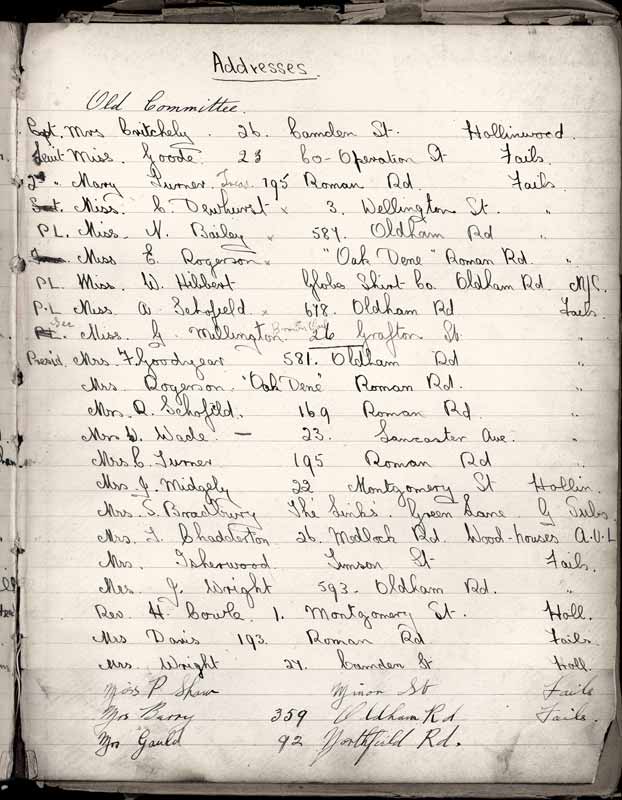 Addresses.
Old Committee.
Cpt. Mrs Critchely. 26. Camden St. Hollinwood.
Lieut Miss. Goode. 23 Co-Operation St Fails.
2nd " Mary Turner. Treas. 195 Roman Rd. Fails.
Miss. C. Dewhurst x 3. Wellington St. "
P L. Miss. N. Bailey x 587. Oldham Rd "
Miss E. Rogerson x "Oak Dene" Roman Rd. "
PL. Miss. W. Hibbert Globe Shirt Co. Oldham Rd.
P.L Miss. A. Schofield. x 678. Oldham Rd Fails.
Sec Miss. G. Millington. 26 Grafton St. "
Presid. Mrs. F. Goodyear 581. Oldham Rd "
Mrs. Rogerson. "Oak Dene" Roman Rd. "
Mrs. R. Schofild. 169 Roman Rd. "
Mrs W. Wade. — 23. Lancaster Ave. "
Mrs C. Turner 195 Roman Rd "
Mrs. J. Midgely 22 Montgomery St Hollin.
Mrs. S. Bradbury The Links. Green Lane. G
Mrs. T. Chadderton 26. Medlock Rd. Wood-houses A.U.L
Mrs. Isherwood. Timson St Fails.
Mrs. J. Wright 593. Oldham Rd. "
Rev. H. Cowle 1. Montgomery St. Holl.
Mrs Davis 193. Roman Rd Fails.
Mrs. Wright 27. Camden St Holl.
Miss P. Shaw Minor St Fails
Mrs Barry 359 Oldham Rd Fails.
Mrs Gauld 92 Northfield Rd.